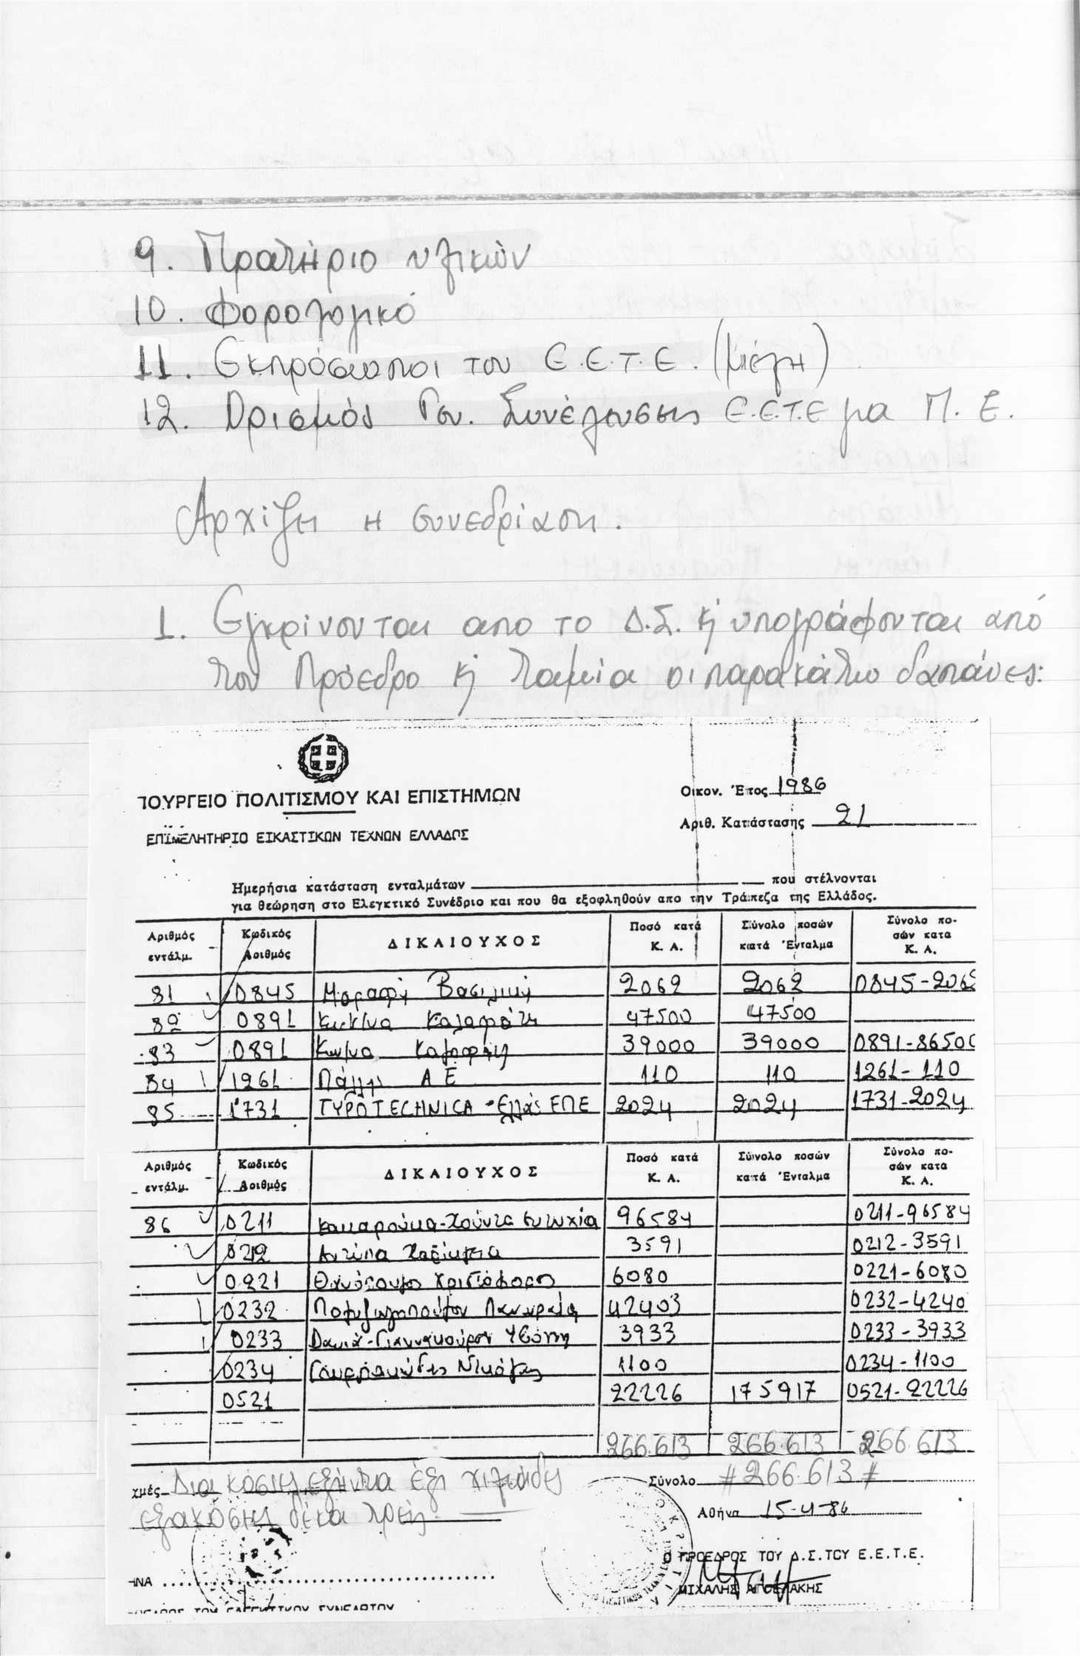 9. Πρατήριο υλικών
10. Φορολογικό
11. Εκπρόσωποι του Ε.Ε.Τ.Ε. (μέλη)
12. Ορισμός Γεν. Συνέλευσης Ε.Ε.Τ.Ε για Π. Ε.
Αρχίζη η συνεδρίαση.
1. Εγκρίνονται απο το Δ.Σ. ή υπογράφονται από
τον Πρόεδρο ή Ταμία οι παρακάτω δαπάνες:
ΤΟΥΡΓΕΙΟ ΠΟΛΙΤΙΣΜΟΥ ΚΑΙ ΕΠΙΣΤΗΜΩΝ
Οικον. Έτος 1986
ΕΠΙΜΕΛΗΤΗΡΙΟ ΕΙΚΑΣΤΙΚΩΝ ΤΕΧΝΩΝ ΕΛΛΑΔΟΣ
Αριθ. Κατάστασης 21
Ημερήσια κατάσταση ενταλμάτων που στέλνονται
για θεώρηση στο Ελεγκτικό Συνέδριο και που θα εξοφληθούν απο την Τράπεζα της Ελλάδος.
Αριθμός εντάλμ. Κωδικός Αριθμός ΔΙΚΑΙΟΥΧΟΣ Ποσό κατά Κ. Α. Σύνολο ποσών κατά Ένταλμα Σύνολο ποσών κατα Κ. Α.
81 0845 Μαραφή Βασιλική 2062 2062 0845-2062
82 0891 47500 47500
83 0891 39000 39000 0891-86500
84 1261 Πάλλη ΑΕ 110 110 1261-110
85 1731 TYPOTECHNICA-Ελλάς ΕΠΕ 2024 2024 1731-2024
Αριθμός εντάλμ. Κωδικός Αριθμός ΔΙΚΑΙΟΥΧΟΣ Ποσό κατά Κ. Α. Σύνολο ποσών κατά Ένταλμα Σύνολο ποσών κατα Κ. Α.
86 0211 96584 0211-96584
0212 3591 0212-3591
0221 6080 0221-6080
0232 42403 0232-4240
0233 3933 0233-3933
0234 Νικόλας 1100 0234-1100
0521 22226 175917 0521-22226
266.613 266.613 266.613
χμές Διακόσιες εξήντα έξι χιλιάδες Σύνολο #266.613#
εξακόσιες δέκα τρείς Αθήνα 15-4-86
Ο ΠΡΟΕΔΡΟΣ ΤΟΥ Δ.Σ.ΤΟΥ Ε.Ε.Τ.Ε.
ΗΝΑ
ΜΙΧΑΛΗΣ